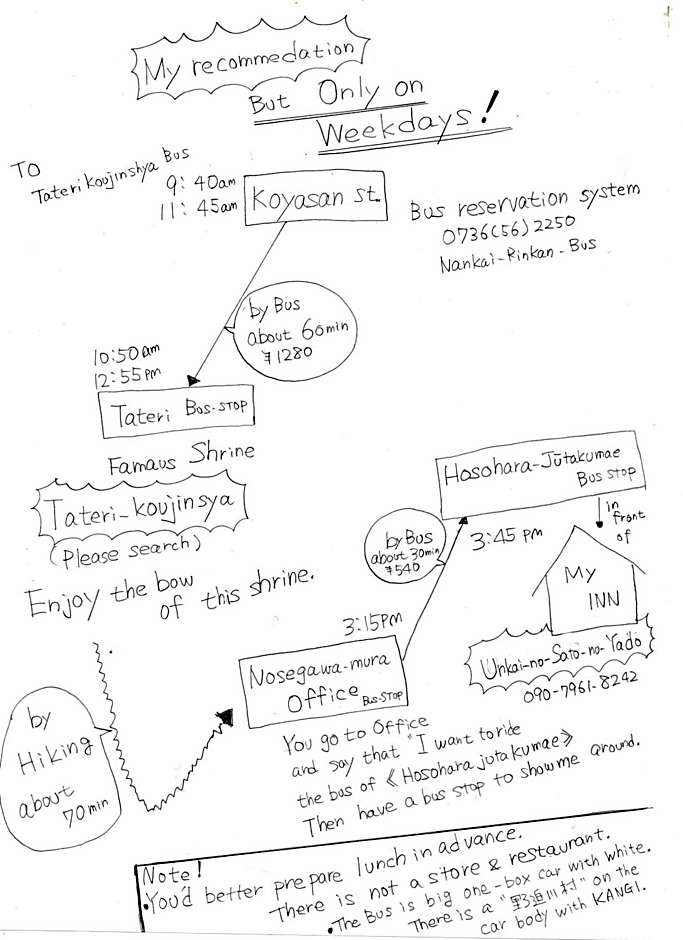 My recommedation
But Only on
Weekdays!
TO
Tateri koujinshya Bus
9:40am
11:45am
Koyasan st.
Bus reservation system
0736(56)2250
Nankai-Rinkan-Bus
by Bus
about 60min
¥1280
10:50am
12:55pm
Tateri Bus-STOP
Famaus Shrine
Tateri-koujinsya
(Please search)
Enjoy the bow
of this shrine.
Hosohara-Jūtakumae
Bus stop
in
front
of
by Bus
about 30min
¥540
3:45 pm
My
INN
Unkai-no-Sato-no-Yado
090-7961-8242
3:15PM
Nosegawa-mura
Office Bus-STOP
by
Hiking
about
70min
You go to Office
and say that "I want to ride
the bus of《Hosohara jutakumae》
Then have a bus stop to show me around.
Note!
•You'd better prepare lunch in advance.
There is not a store & restaurant.
•The Bus is big one-box car with white.
There is a "野迫川村" on the
car body with KANGI.